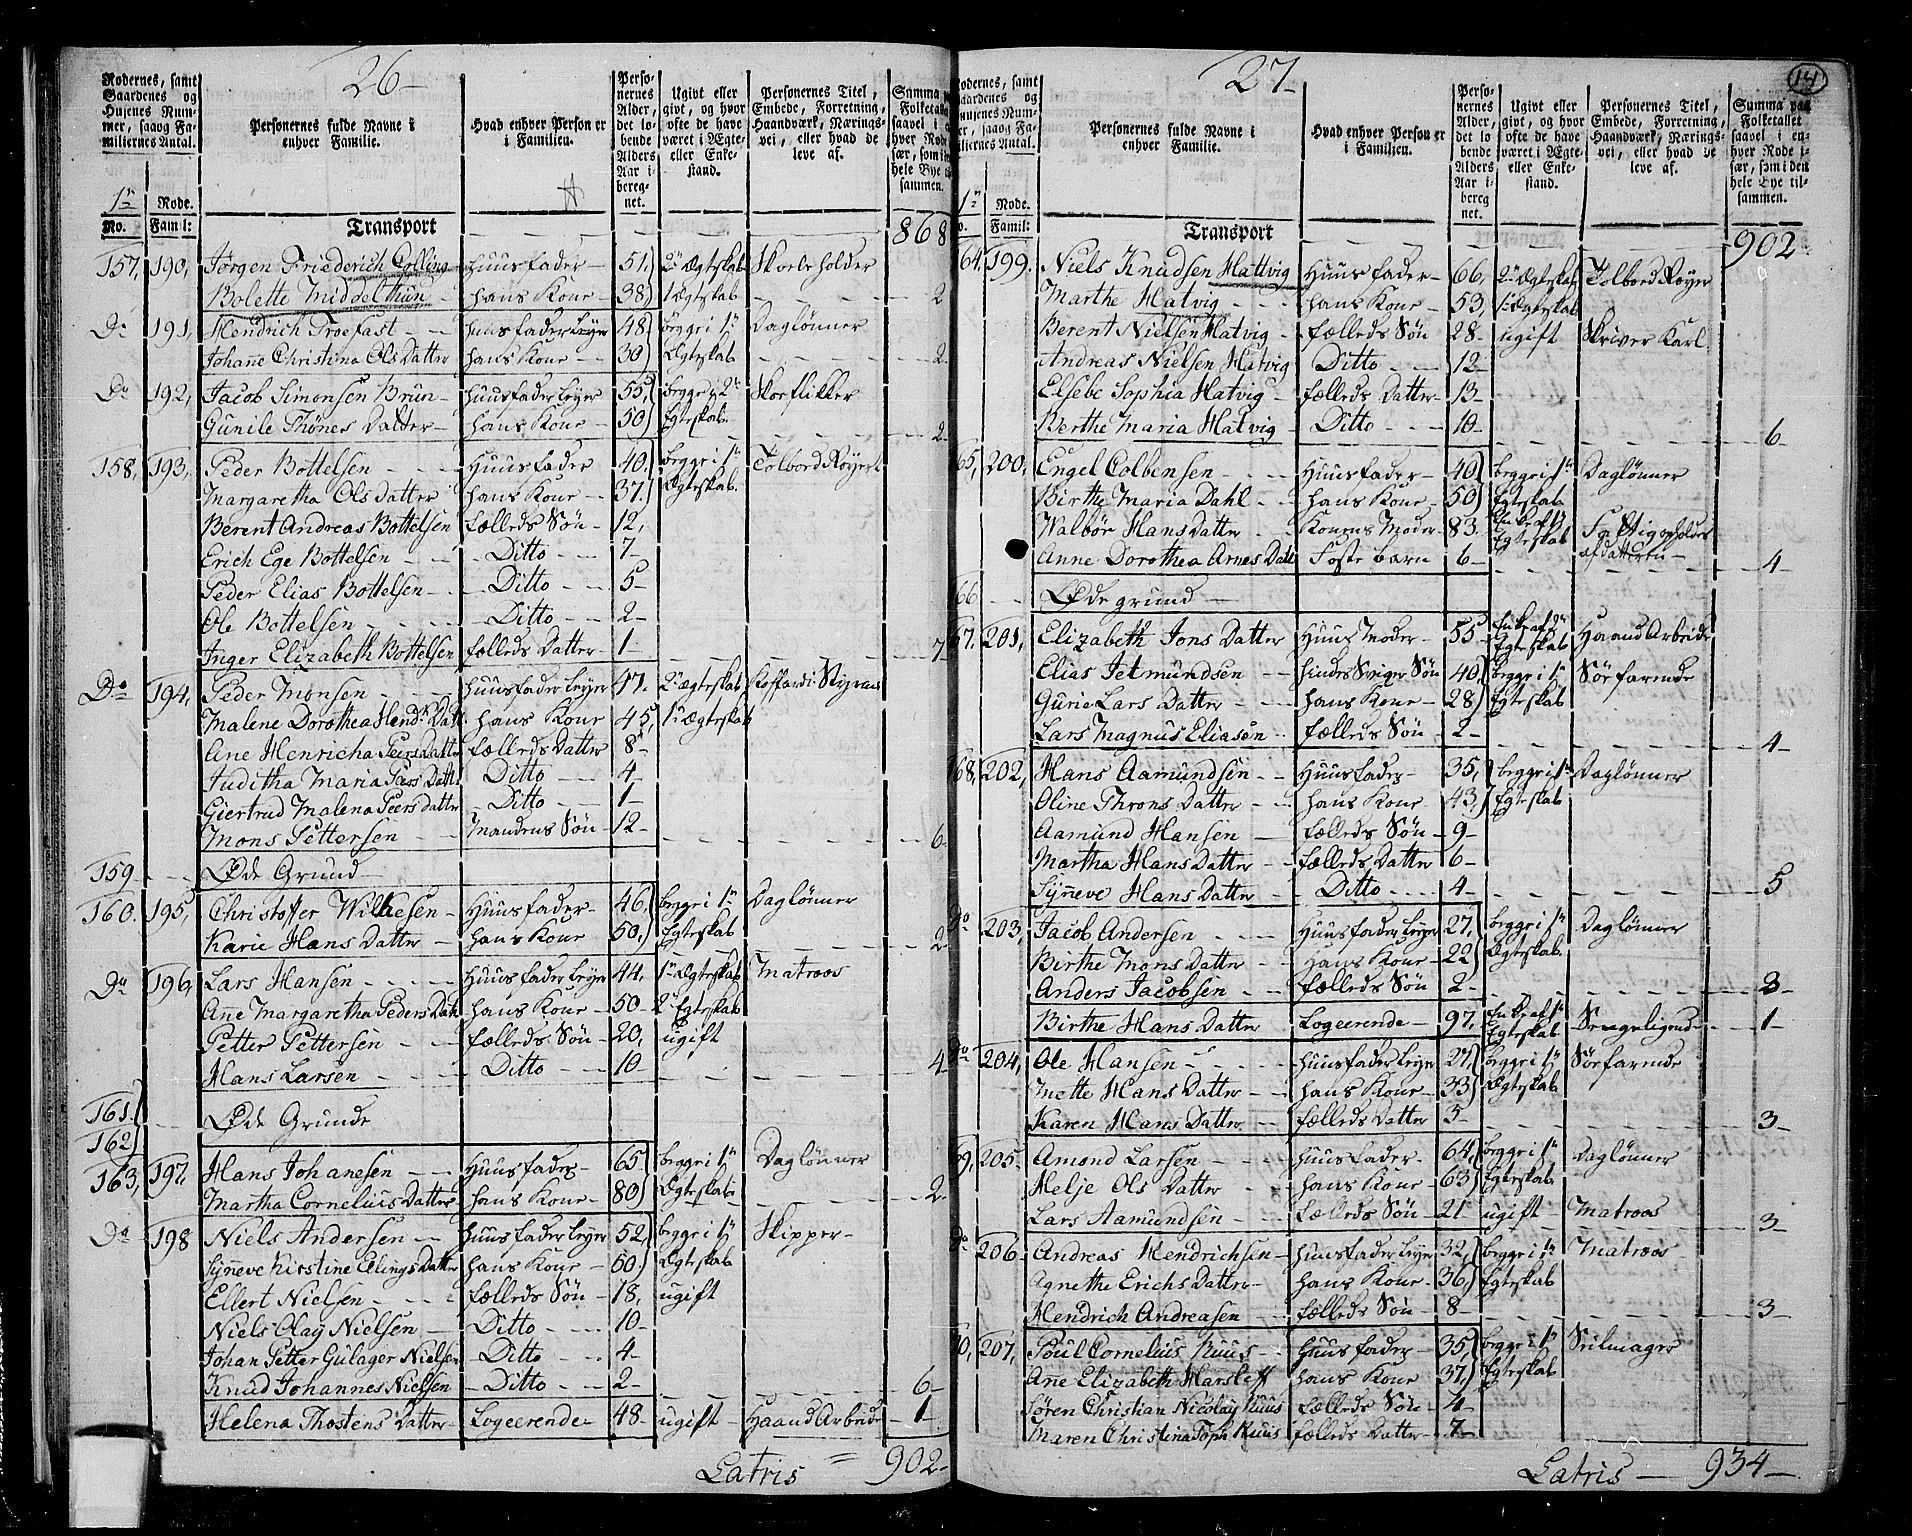 26
Rodernes, samt Gaardenes og Husenes Nummer, saavog Familiernes Antal.
Personernes fulde Navne i enhver Familie.
Hvad enhver Person er i Familien.
Personernes Alder, det løbende Alders Aar iberegnet.
Ugivt eller givt, og hvor ofte de have været i Ægte- eller Enkestand.
Personernes Titel, Embede, Forretning, Haandværk, Næringsvei, eller hvad de leve af.
1te Rode.
No. Famil: Transport 868
157, 190, Jørgen Friederich Colling Huusfader 51, 2 Ægteskab Skoeholder
Bolette Middelthun hans Kone 38) 1 Ægteskab 2
Do 191, Hendrich Troefast huusfader Leyer 48, begge i 1te Daglønner
Johane Christina Olsdatter hans Kone 30) Ægteskab 2
Do 192, Jacob Simonsen Brun huusfader Leyer 55, begge i 2te Skoeflikker
Gunile Thønes Datter hans Kone 50) Egteskab 2
158, 193, Peder Bottelsen Huusfader 40, begge i 1te Tolbord Røyert
Margaretha Olsdatter hans Kone 37, Ægteskab.
Berent Andreas Bottelsen fælleds Søn 12,
Erich Ege Bottelsen Ditto 7
Peder Elias Bottelsen Ditto 5
Ole Bottelsen Ditto 2
Inger Elizabeth Bottelsen fælleds Datter 1 7
Do 194, Peder Monsen huusfader Leyer 47. 2 Ægteskab Koffardi Styrman
Malene Dorothea Hend: Datt hans Kone 45, 1te Ægteskab
Ane Henricha Peers Datter fælleds Datter 8
Juditha Maria Peers Datt Ditto 4
Giertrud Malena Peers datter Ditto 1
Mons Pettersen Mandens Søn 12 6
159 Øde Grund
160. 195, Christoffer Willesen Huusfader 46, begge i 1te Daglønner
Karie Hans Datter hans Kone 50, Egteskab 2
Do 196, Lars Hansen Huusfader Leyer 44, 1te Ægteskab Matroos
Ane Margaretha Peders Datt hans Kone 50 2 Egteskab
Petter Pettersen fælleds Søn 20, ugift
Hans Larsen Ditto 10 4
161)
162) Øde Grunde
163, 197, Hans Johanesen Huusfader 65 begge i 1te Daglønner
Martha Cornelius Datter hans Kone 80) Ægteskab 2
Do 198 Niels Andersen huusfader Leyer 52, begge i 1te Skipper
Syneve Kirstine Ellings Datter hans Kone 50) Ægteskab
Ellert Nielsen fælleds Søn 18, ugift
Niels Olag Nielsen Ditto 10
Johan Petter Gulager Nielsen Ditto 4
Knud Johannes Nielsen Ditto 2 6
Helena Thostens Datter Logeerende 48 ugift Haand Arbeide 1
Latris 902
27
14
Personernes fulde Navne i enhver Familie.
Hvad enhver Person er i Familien.
Personernes Alder, det løbende Alders Aar iberegnet.
Ugivt eller givt, og hvor ofte de have været i Ægte- eller Enkestand.
Personernes Titel, Embede, Forretning, Haandværk, Næringsvei, eller hvad de leve af.
Summa paa Folketallet saavel i enhver Rode især, som i den hele Bye tilsammen.
1te Rode.
Famil: Transport 902
64, 199. Niels Knudsen Hattvig Huusfader 66, 2 Ægteskab Tolbord Røyer
Marthe Hatvig hans Kone 53, 1te Ægteskab
Berent Nielsen Hatvig fælleds Søn 28 ugift Skriver Karl
Andreas Nielsen Hatvig Ditto 12
Elsebe Sophia Hatvig fælleds Datter 13
Berthe Maria Hatvig Ditto 10 6
65, 200, Engel Colbensen Huusfader 40) begge i 1te Daglønner
Birthe Maria Dahl hans Kone 50) Egteskab
Walbor Hans datter Konens Moder 83. Enke af 1te Egteskab
Anne Dorothea Arnes Datt Foste barn 6 af datteren 4
66 Øde grund
67. 201, Elizabeth Jons Datter Huus Moder 55 Enke af 2te Egteskab Haand Arbeide
Elias Jetmundsen hendes Sviger Søn 40, begge i 1te Søefarende
Gurie Lars Datter hans Kone 28) Egteskab
Lars Magnus Eliasen fælleds Søn 2 4
68, 202, Hans Aamundsen Huusfader 35, begge i 1te Daglønner
Oline Throns Datter hans Kone 43, Egteskab
Aamund Hansen fælleds Søn 9
Martha Hans Datter fælleds Datter 6
Syneve Hans Datter Ditto 4 5
Do 203, Jacob Andersen Huusfader Leyer 27, begge i 1te Daglønner
Birthe Mons Datter hans Kone 22) Ægteskab.
Anders Jacobsen fælleds Søn 2 3
Birthe Hans Datter Logeerende 97, Enke af 1te Egteskab Sengeligende 1
Do 204, Ole Hansen huusfader Leyer 27, begge i 1te Søefarende
Mette Hans Datter hans Kone 33) Ægteskab
Karen Hans Datter fælleds Datter 3 3
69, 205 Amond Larsen huusfader 64, begge i 1te Daglønner
Helje Ols Datter hans Kone 63) Egteskab
Lars Aamundsen fælleds Søn 21 ugift Matroos 3
Do 206 Andreas Hendrichsen huusfader Leyer 32, begge i 1te Matroos
Agnethe Erichs Datter hans Kone 36) Egteskab
Hendrich Andreasen fælleds Søn 8 3
70, 207, Poul Cornelius Ruus huusfader 35, begge i 1te Seilmager
Ane Elizabeth Harsleff hans Kone 37, Egteskab
Søren Christian Nicolay Ruus fælleds Søn 4
Maren Christina Soph: Ruus fælleds Datter 7
Latris 934